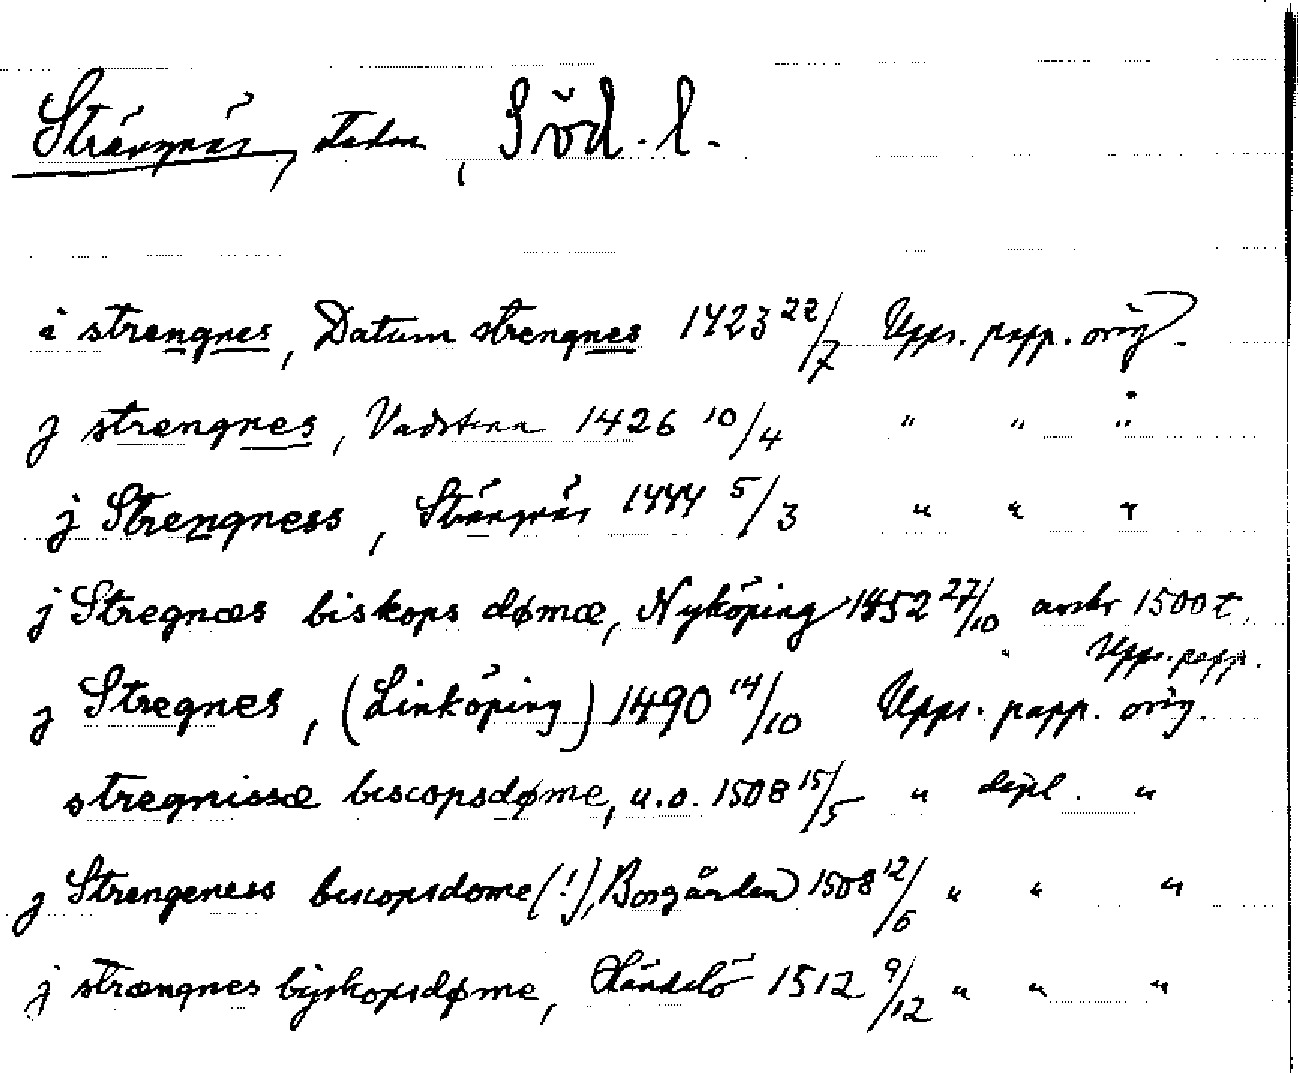 Strängnäs, staden, Söd. l.
i strengnes, Datum strengnes 1423 22/7 Upps. papp. orig.
j strengnes, Vadstena 1426 10/4 " " "
j Strengness, Strängnäs 1444 5/3 " " "
j Stregnæs biskops dømæ, Nyköping 1452 27/10 avskr 1500 t.
Upps. papp.
j Stregnes, (Linköping) 1490 14/10 Upps. papp. orig.
stregnissæ biscopsdøme, u.o. 1508 15/5 " dipl. "
j Strengeness biscopsdome (!), Borgården 1508 12/6 " " "
j strængnes bijskopsdøme, Händelö 1512 9/12 " " "